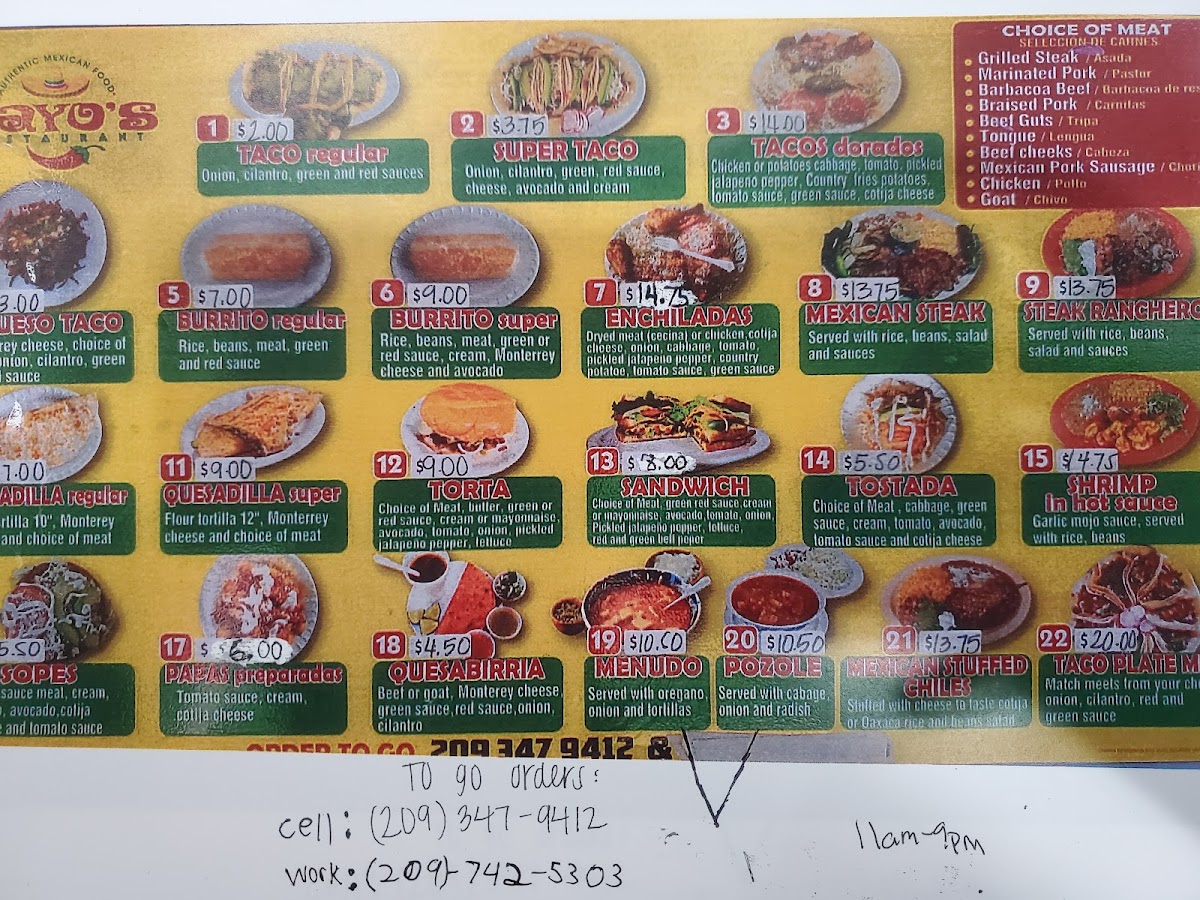 AUTHENTIC MEXICAN FOOD
AYO'S
STAURANT
1 $2.00
TACO regular
Onion, cilantro, green and red sauces
2 $3.75
SUPER TACO
Onion, cilantro, green, red sauce,
cheese, avocado and cream
3 $14.00
TACOS dorados
Chicken or potatoes cabbage, tomato, pickled
jalapeno pepper, Country fries potatoes,
tomato sauce, green sauce, cotija cheese
CHOICE OF MEAT
SELECCION DE CARNES
Grilled Steak / Asada
Marinated Pork / Pastor
Barbacoa Beef / Barbacoa de res
Braised Pork / Carnitas
Beef Guts / Tripa
Tongue / Lengua
Beef cheeks / Cabeza
Mexican Pork Sausage / Chori
Chicken / Pollo
Goat / Chivo
3.00
UESO TACO
rey cheese, choice of
onion, cilantro, green
d sauce
5 $7.00
BURRITO regular
Rice, beans, meat, green
and red sauce
6 $9.00
BURRITO super
Rice, beans, meat, green or
red sauce, cream, Monterrey
cheese and avocado
7 $14.75
ENCHILADAS
Dryed meat (cecina) or chicken,cotija
cheese, onion, cabbage, tomato,
pickled jalapeño pepper, country
potatoe, tomato sauce, green sauce
8 $13.75
MEXICAN STEAK
Served with rice, beans, salad
and sauces
9 $13.75
STEAK RANCHERO
Served with rice, beans,
salad and sauces
7.00
ADILLA regular
rtilla 10", Monterey
and choice of meat
11 $9.00
QUESADILLA super
Flour tortilla 12", Monterrey
cheese and choice of meat
12 $9.00
TORTA
Choice of Meat, butter, green or
red sauce, cream or mayonnaise,
avocado, tomato, onion, pickled
jalapeño pepper, lettuce
13 $8.00
SANDWICH
Choice of Meat, green red sauce, cream
or mayonnaise, avocado, tomato, onion,
Pickled jalapeño pepper, lettuce,
red and green bell peper
14 $5.50
TOSTADA
Choice of Meat , cabbage, green
sauce, cream, tomato, avocado,
tomato sauce and cotija cheese
15 $14.75
SHRIMP
in hot sauce
Garlic mojo sauce, served
with rice, beans
5.50
SOPES
sauce meat, cream,
, avocado,cotija
e and tomato sauce
17 $ $6.00
PAPAS preparadas
Tomato sauce, cream,
cotija cheese
18 $4.50
QUESABIRRIA
Beef or goat, Monterey cheese,
green sauce,red sauce,onion,
cilantro
19 $10.60
MENUDO
Served with oregano,
onion and tortillas
20 $10.50
POZOLE
Served with cabage,
onion and radish
21 $13.75
MEXICAN STUFFED
CHILES
Stuffed with cheese to taste cotija
or Oaxaca rice and beans salad
22 $20.00
TACO PLATE M
Match meets from your cho
onion, cilantro, red and
green sauce
ORDER TO GO 209 347 9412 &
To go orders:
cell: (209) 347-9412
work: (209)-742-5303
11am-9pm